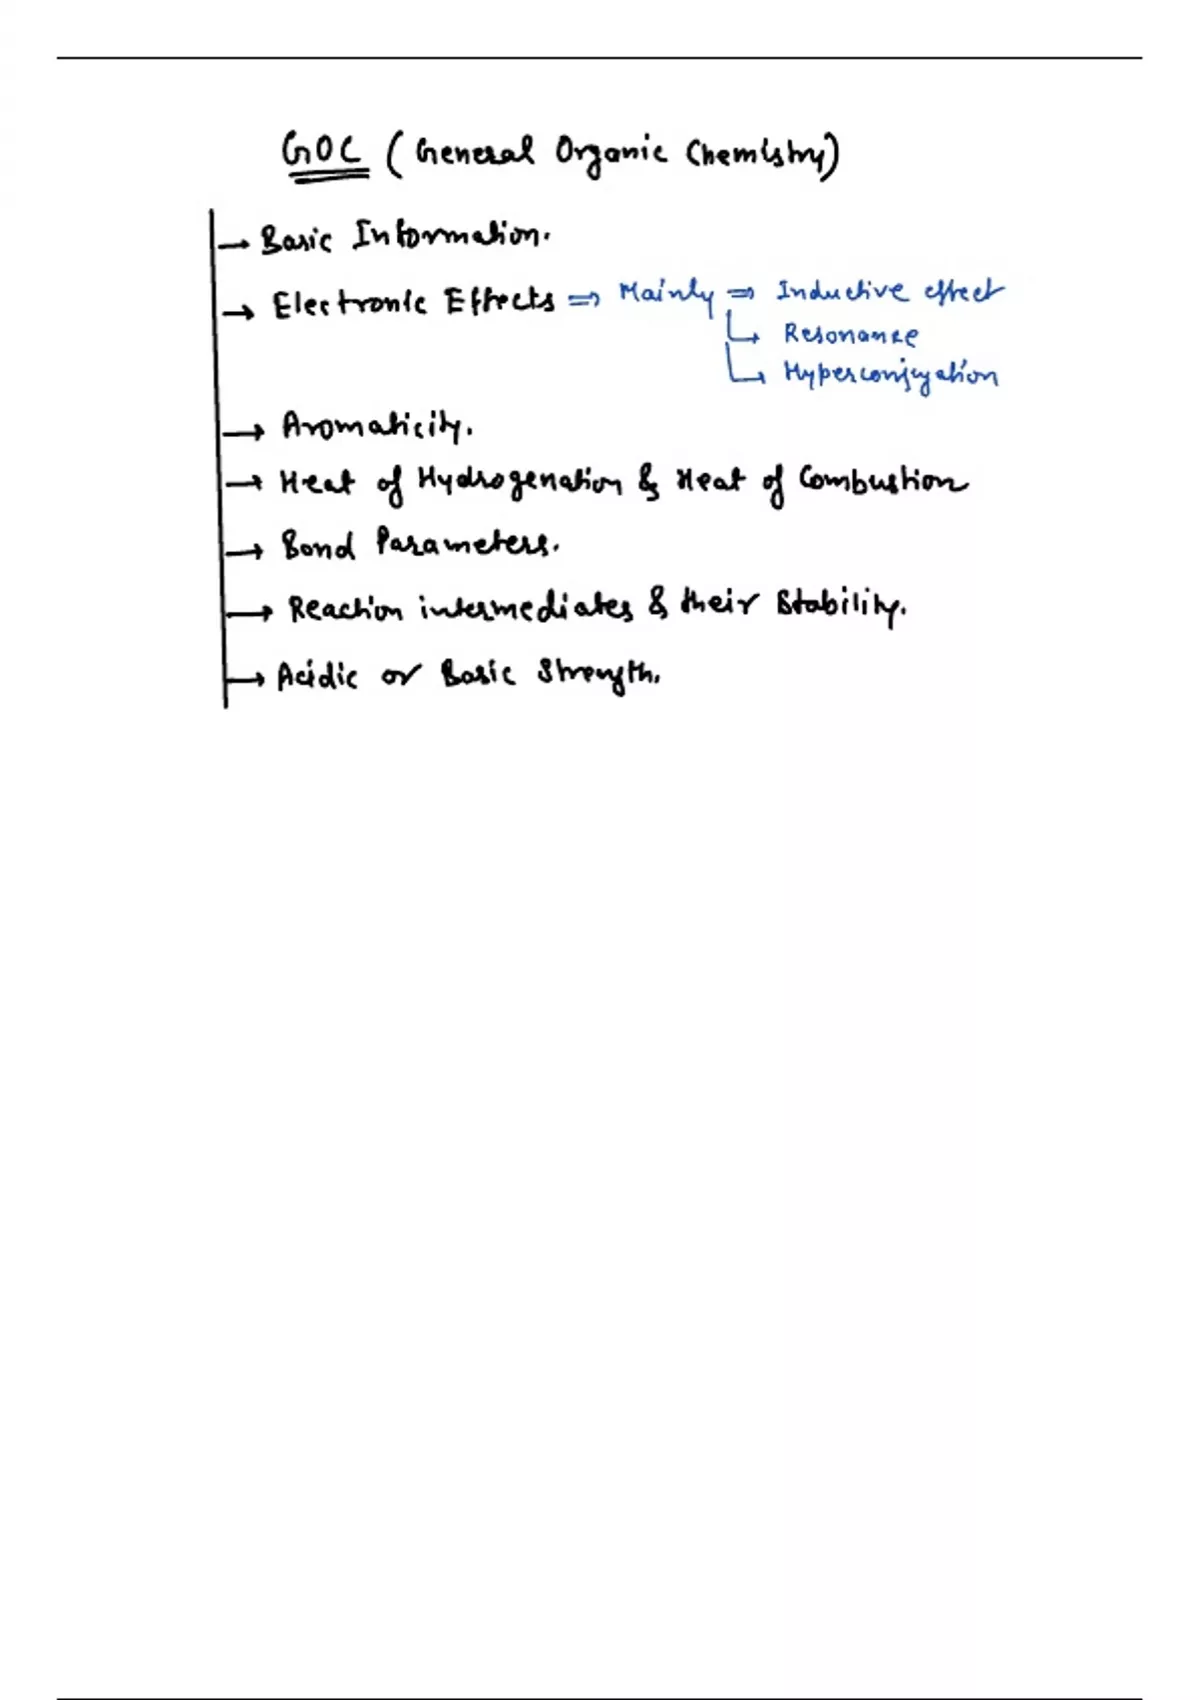 GOC (General Organic Chemistry)
→ Basic Information.
→ Electronic Effects ⇒ Mainly ⇒ Inductive effect
↳ Resonance
↳ Hyperconjugation
→ Aromaticity.
→ Heat of Hydrogenation & Heat of Combustion
→ Bond Parameters.
→ Reaction intermediates & their Stability.
→ Acidic or Basic Strength.